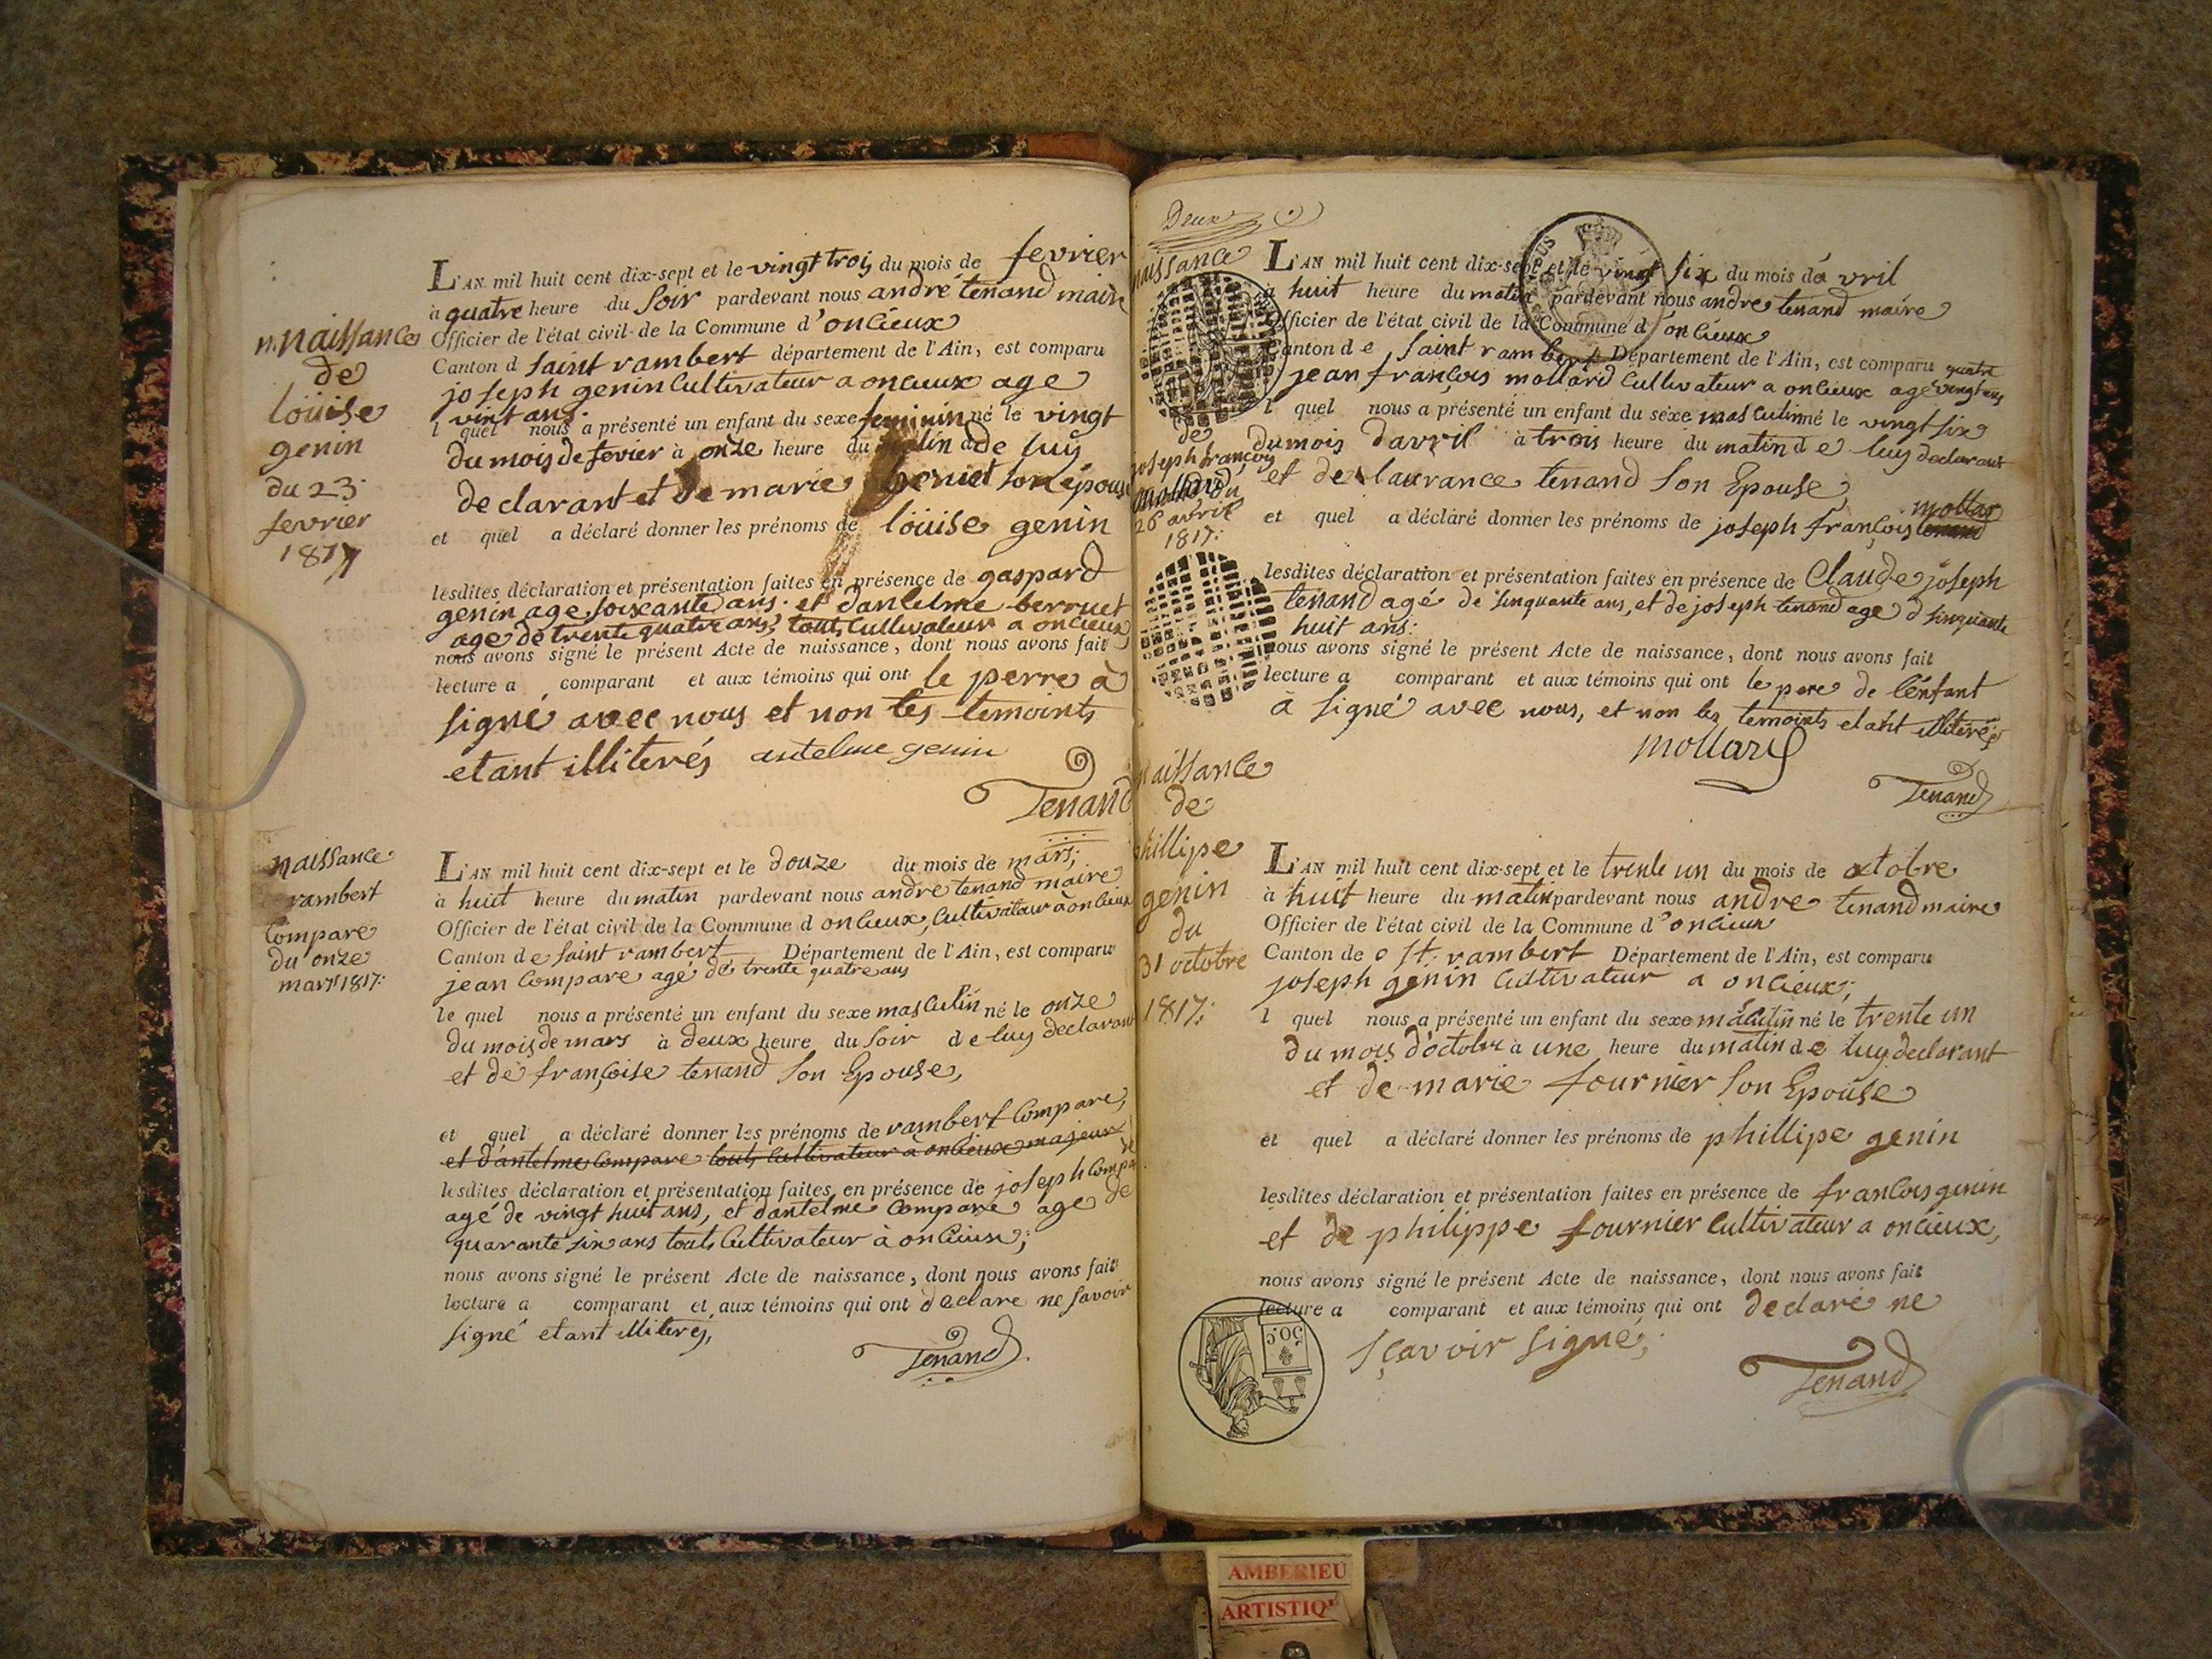 n. naissance
de
loüise
genin
du 23
fevrier
1817
L'AN mil huit cent dix-sept et le vingt trois du mois de fevrier
à quatre heure du soir pardevant nous andré tenand maire
Officier de l'état civil de la Commune d'oncieux
Canton d saint rambert département de l'Ain, est comparu
joseph genin cultivateur a oncieux age
vint ans.
l quel nous a présenté un enfant du sexe feminin né le vingt
du mois de fevier à onze heure du matin de luy
declarant et de marie son épouse
et quel a déclaré donner les prénoms de loüise genin
lesdites déclaration et présentation faites en présence de gaspard
genin age soixante ans. et d'antelme berruet
age de trente quatre ans, touts cultivateur a oncieux
nous avons signé le présent Acte de naissance, dont nous avons fait
lecture a comparant et aux témoins qui ont le perre à
signé avec nous et non les temoints
etant illiterés antelme genin
Tenand
naissance
rambert
Compare
du onze
mars 1817:
L'AN mil huit cent dix-sept et le douze du mois de mars;
à huit heure du matin pardevant nous andre tenand maire
Officier de l'état civil de la Commune d oncieux, cultivateur a oncieux
Canton de saint rambert Département de l'Ain, est comparu
jean Compare agé de trente quatre ans
le quel nous a présenté un enfant du sexe masculin né le onze
du mois de mars à deux heure du soir de luy declarant
et de françoise tenand son Epouse,
et quel a déclaré donner les prénoms de rambert Compare,
et d'antelme Compare touts cultivateur a oncieux majeur
lesdites déclaration et présentation faites en présence de joseph Compare
agé de vingt huit ans, et d'antelme Compare age de
quarante six ans touts cultivateur à oncieux;
nous avons signé le présent Acte de naissance, dont nous avons fait
lecture a comparant et aux témoins qui ont declare ne savoir
signé etant illiterés,
Tenand
Deux
naissance
de
joseph françois
mollard du
26 avril
1817:
L'AN mil huit cent dix-sept et le vingt six du mois d'a vril
à huit heure du matin pardevant nous andre tenand maire
Officier de l'état civil de la Commune d'oncieux
Canton de saint rambert Département de l'Ain, est comparu quatre
jean françois mollard cultivateur a oncieux age vingt ans
l quel nous a présenté un enfant du sexe masculin né le vingt six
du mois d'avril à trois heure du matin de luy declarant
et de laurance tenand son Epouse,
mollar
et quel a déclaré donner les prénoms de joseph françois tenand
lesdites déclaration et présentation faites en présence de Claude joseph
tenand agé de sinquante ans, et de joseph tenand age d sinquante
huit ans:
nous avons signé le présent Acte de naissance, dont nous avons fait
lecture a comparant et aux témoins qui ont le pere de l'énfant
à signé avec nous, et non les temoints etant illiterés
mollard
Tenand
naissance
de
phillipe
genin
du
31 octobre
1817:
L'AN mil huit cent dix-sept et le trente un du mois de octobre
à huit heure du matin pardevant nous andre tenand maire
Officier de l'état civil de la Commune d'oncieux
Canton de st. rambert Département de l'Ain, est comparu
joseph genin cultivateur a oncieux;
l quel nous a présenté un enfant du sexe masculin né le trente un
du mois d'octobre à une heure du matin de luy declarant
et de marie fournier son Epouse
et quel a déclaré donner les prénoms de phillipe genin
lesdites déclaration et présentation faites en présence de francois genin
et de philippe fournier cultivateur a oncieux,
nous avons signé le présent Acte de naissance, dont nous avons fait
lecture a comparant et aux témoins qui ont declaré ne
sçavoir signé;
Tenand
50c
AMBERIEU
ARTISTIQ'